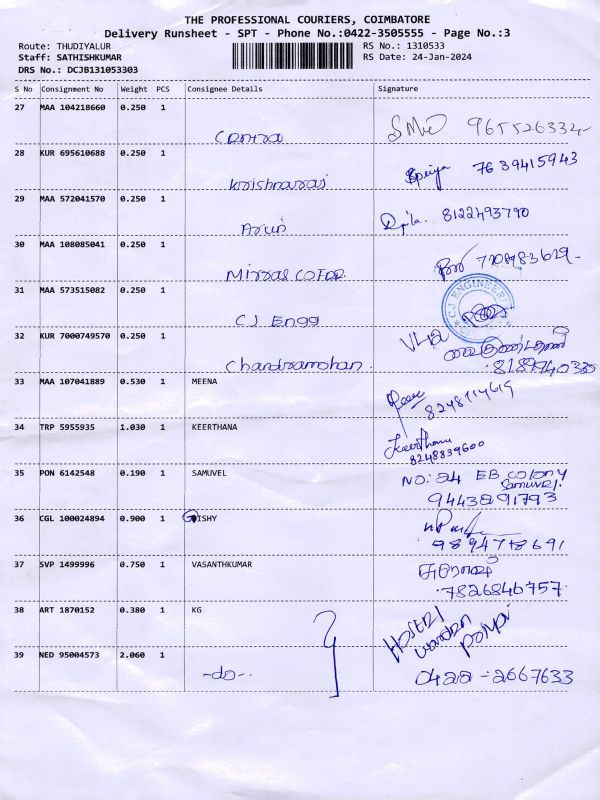 THE PROFESSIONAL COURIERS, COIMBATORE
Delivery Runsheet - SPT - Phone No.:0422-3505555 - Page No.:3
Route: THUDIYALUR RS No.: 1310533
Staff: SATHISHKUMAR RS Date: 24-Jan-2024
DRS No.: DCJB131053303
S No Consignment No Weight PCS Consignee Details Signature
27 MAA 104218660 0.250 1
28 KUR 695610688 0.250 1
Krishnaraj Priya 7639415943
29 MAA 572041570 0.250 1
Arun 8122493790
30 MAA 108085041 0.250 1
31 MAA 573515082 0.250 1
CJ Engg CJ ENGINEERI
32 KUR 7000749570 0.250 1
Chandramohan.
33 MAA 107041889 0.530 1 MEENA
34 TRP 5955935 1.030 1 KEERTHANA
Keerthana
8248839600
35 PON 6142548 0.190 1 SAMUVEL NO: 24 EB COLONY
Samuvel.
9443291793
36 CGL 100024894 0.900 1 GISHY
37 SVP 1499996 0.750 1 VASANTHKUMAR
7826846757.
38 ART 1870152 0.380 1 KG
39 NED 95004573 2.060 1
-do-. 0422-2667633